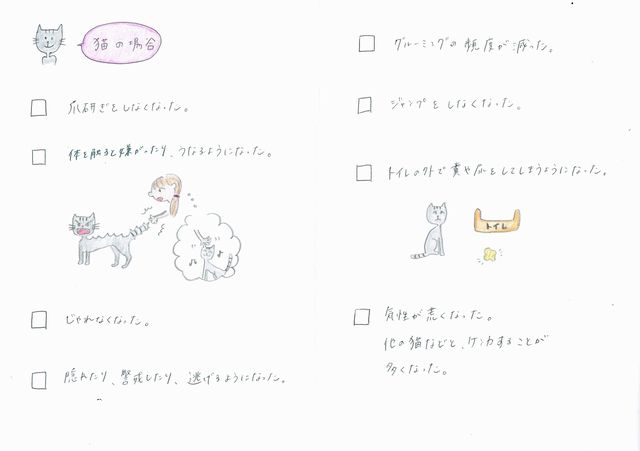 猫の場合
爪研ぎをしなくなった。
体を触ると嫌がったり、うなるようになった。
じゃれなくなった。
隠れたり、警戒したり、逃げるようになった。
グルーミングの頻度が減った。
ジャンプをしなくなった。
トイレの外で糞や尿をしてしまうようになった。
トイレ
気性が荒くなった。
他の猫などと、ケンカすることが
多くなった。